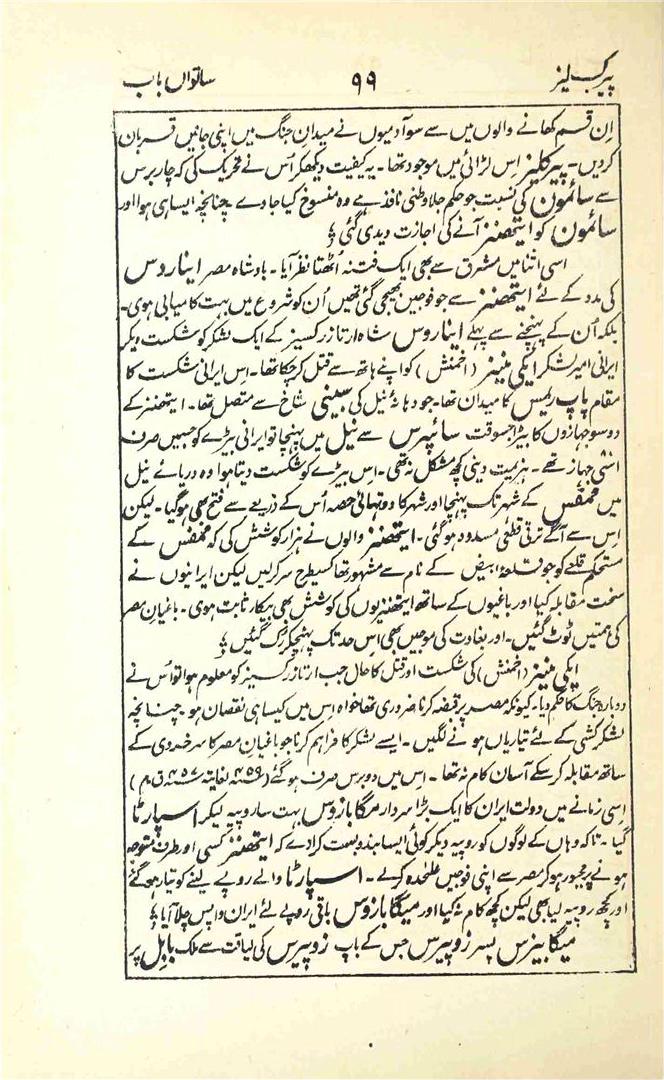 پیرکلیز ۹۹ ساتواں باب
اِن قسم کھانے والوں میں سے سو آدمیوں نے میدان جنگ میں اپنی جانیں قربان
کردیں۔ پیرکلیز اس لڑائی میں موجود تھا۔ یہ کیفیت دیکھکر اُس نے تحریک کی کہ چار برس
سے سائمون کی نسبت جو حکم جلاوطنی نافذ ہے وہ منسوخ کیا جاوے چنانچہ ایسا ہی ہوا اور
سائمون کو ایتھنز آنے کی اجازت دیدی گئی ؛
اسی اثنا میں مشرق سے بھی ایک فتنہ اُٹھتا نظر آیا۔ بادشاہ مصر ایناروس
کی مدد کے لئے ایتھنز سے جو فوجیں بھیجی گئی تھیں اُن کو شروع میں بہت کامیابی ہوی۔
بلکہ اُن کے پہنچنے سے پہلے ایناروس شاہ ارتازرکسیز کے ایک لشکر کو شکست دیکر
ایرانی امیر لشکر ایکی منیز (اخمنش) کو اپنے ہاتھ سے قتل کرچکا تھا۔ اس ایرانی شکست کا
مقام پاپ ریمس کا میدان تھا۔ جو دہانۂ نیل کی سبینی شاخ سے متصل تھا۔ ایتھنز کے
دو سو جہازوں کا بیڑا جسوقت سائپرس سے نیل میں پہنچا تو ایرانی بیڑے کو جسمیں صرف
اسّی جہاز تھے۔ ہزیمت دینی کچھ مشکل نہ تھی۔ اس بیڑے کو شکست دیتا ہوا وہ دریائے نیل
میں ممفس کے شہر تک پہنچا اور شہر کا دو تہائی حصہ اُس کے ذریعے سے فتح بھی ہوگیا۔ لیکن
اِس سے آگے ترقی قطعی مسدود ہوگئی۔ ایتھنز والوں نے ہزار کوشش کی کہ ممفس کے
مستحکم قلعے کو جو قلعۂ ابیض کے نام سے مشہور تھا کسیطرح سر کرلیں لیکن ایرانیوں نے
سخت مقابلہ کیا اور باغیوں کے ساتھ ایتھنزیوں کی کوشش بھی بیکار ثابت ہوی۔ باغیان مصر
کی ہمتیں ٹوٹ گئیں۔ اور بغاوت کی موجیں بھی اس حد تک پہنچکر رُک گئیں ؛
ایکی منیز (اخمنش) کی شکست اور قتل کا حال جب ارتازرکسیز کو معلوم ہوا تو اُس نے
دوبارہ جنگ کا حکم دیا۔ کیونکہ مصر پر قبضہ کرنا ضروری تھا خواہ اِس میں کیسا ہی نقصان ہو۔ چنانچہ
لشکر کشی کے لئے تیاریاں ہونے لگیں۔ ایسے لشکر کا فراہم کرنا جو باغیان مصر کا سرخروی کے
ساتھ مقابلہ کرسکے آسان کام نہ تھا۔ اس میں دو برس صرف ہوگئے (۴۵۹؁ لغایتہ ۴۵۷؁ ق م)
اِسی زمانے میں دولت ایران کا ایک بڑا سردار مگابازوس بہت سا روپیہ لیکر اسپارٹا
گیا۔ تاکہ وہاں کے لوگوں کو روپیہ دیکر کوئی ایسا بندوبست کرا دے کہ ایتھنز کسی اور طرف متوجہ
ہونے پر مجبور ہوکر مصر سے اپنی فوجیں علٰحدہ کرلے۔ اسپارٹا والے روپے لینے کو تیار ہوگئے
اور کچھ روپیہ لیا بھی لیکن کچھ کام نہ کیا اور میگابازوس باقی روپے لئے ایران واپس چلا آیا ؛
میگابیزس پسر زوپیرس جس کے باپ زوپیرس کی لیاقت سے ملک بابل پر